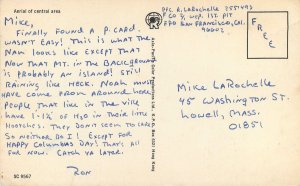 Aerial of central area
Mike,
Finally found a p.card.
Wasn't easy! This is what the
Nam looks like except that
now that mt. in the background
is probably an island! Still
raining like heck. Noah must
have come from around here.
People that live in the ville
have 1-1½' of H2O in their little
hootches. They don't seem to care
so neither do I! Except for
Happy Columbus Day! That's all
for now. Catch ya later.
Ron
SC 9567
PFC R. LaRochelle
CO
FPO San Francisco, Cal.
FREE
Mike LaRochelle
45 Washington St.
Lowell, Mass.
01851